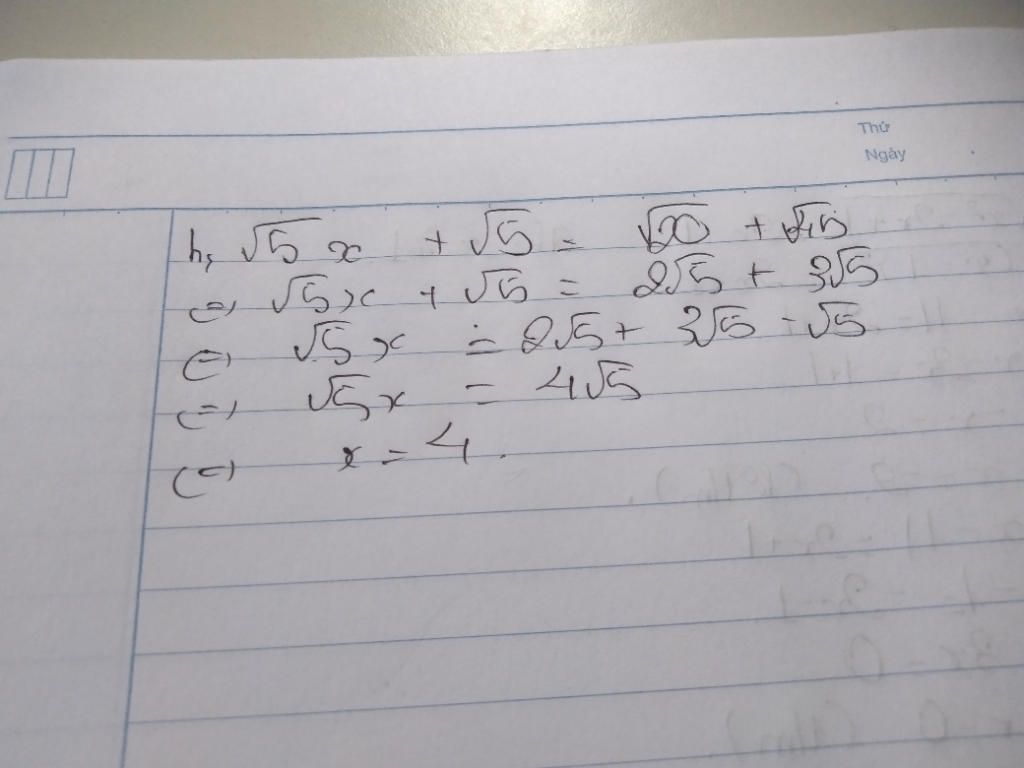 Thứ
Ngày
h, √5 x + √5 = √20 + √45
<=> √5 x + √5 = 2√5 + 3√5
<=> √5 x = 2√5 + 3√5 - √5
<=> √5 x = 4√5
<=> x = 4.